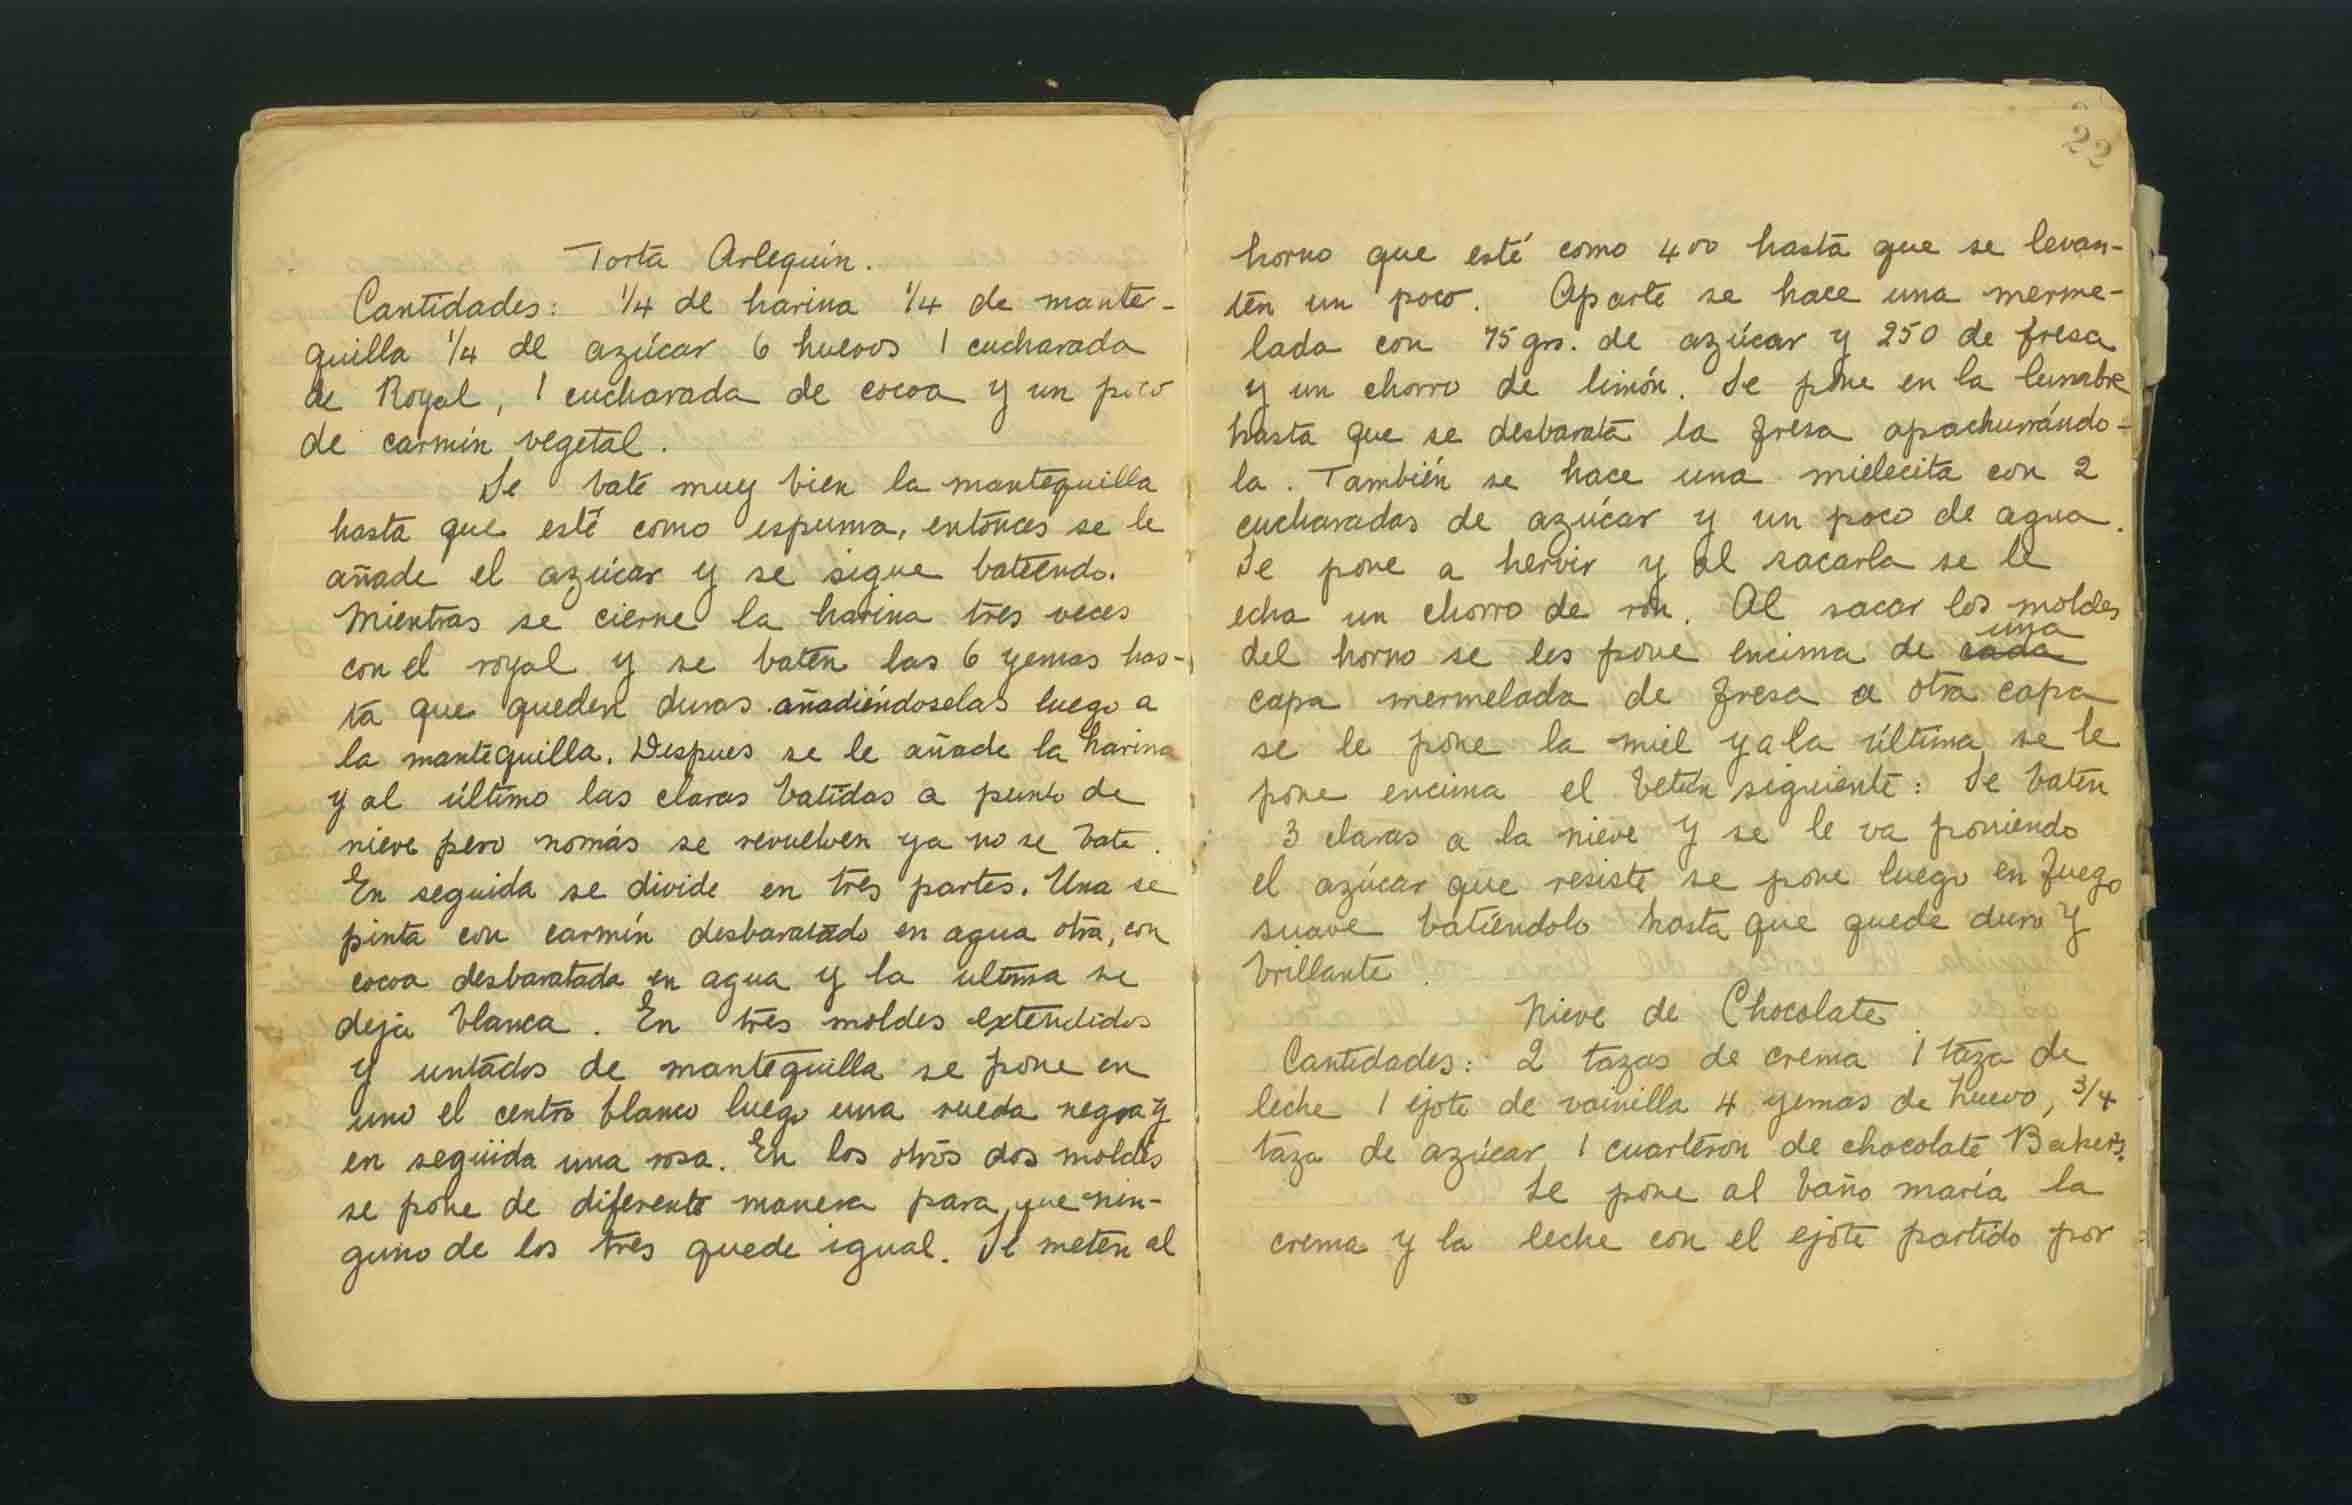 Torta Arlequín.
Cantidades: 1/4 de harina 1/4 de mante-
quilla 1/4 de azúcar 6 huevos 1 cucharada
de Royal, 1 cucharada de cocoa y un poco
de carmín vegetal.
Se bate muy bien la mantequilla
hasta que esté como espuma, entonces se le
añade el azúcar y se sigue batiendo.
Mientras se cierne la harina tres veces
con el royal y se baten las 6 yemas has-
ta que queden duras añadiéndoselas luego a
la mantequilla. Despues se le añade la harina
y al último las claras batidas a punto de
nieve pero nomás se revuelven ya no se bate.
En seguida se divide en tres partes. Una se
pinta con carmín desbaratado en agua otra, con
cocoa desbaratada en agua y la ultima se
deja blanca. En tres moldes extendidos
y untados de mantequilla se pone en
uno el centro blanco luego una rueda negra y
en següida una rosa. En los otros dos moldes
se pone de diferente manera para que nin-
guno de los tres quede igual. Se meten al
22
horno que esté como 400 hasta que se levan-
ten un poco. Aparte se hace una merme-
lada con 75 grs. de azúcar y 250 de fresa
y un chorro de limón. Se pone en la lumbre
hasta que se desbarata la fresa apachurrándo-
la. También se hace una mielecita con 2
cucharadas de azúcar y un poco de agua.
Se pone a hervir y al sacarla se le
echa un chorro de ron. Al sacar los moldes
una
del horno se les pone encima de cada
capa mermelada de fresa a otra capa
se le pone la miel y a la última se le
pone encima el betún siguiente: Se baten
3 claras a la nieve y se le va poniendo
el azúcar que resiste se pone luego en fuego
suave batiéndolo hasta que quede duro y
brillante.
Nieve de Chocolate
Cantidades: 2 tazas de crema 1 taza de
leche 1 ejote de vainilla 4 yemas de huevo, 3/4
taza de azúcar 1 cuarterón de chocolate Baker's.
Se pone al baño maría la
crema y la leche con el ejote partido por